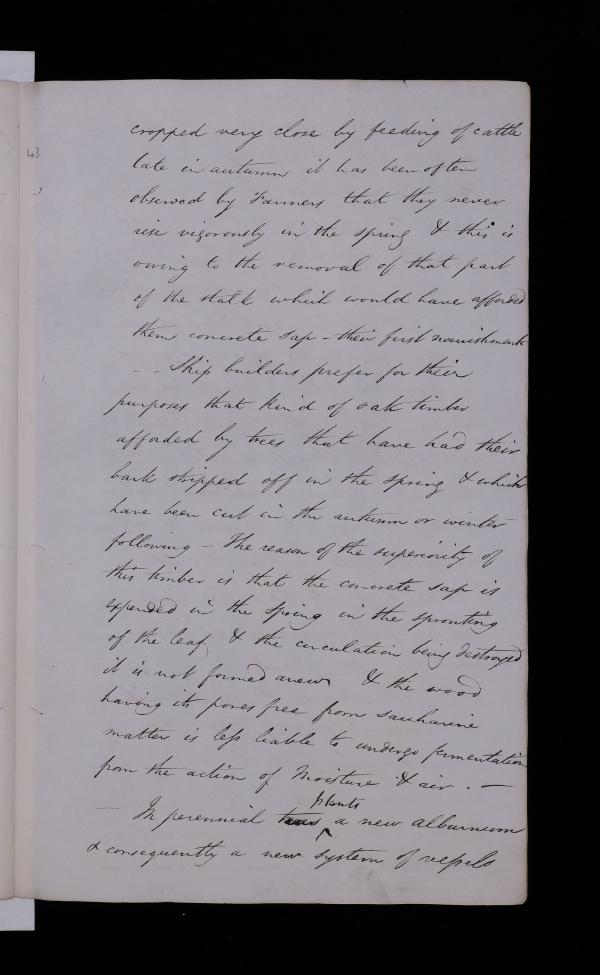 43
cropped very close by feeding of cattle
late in autumn it has been often
observed by Farmers that they never
rise vigorously in the spring & this is
owing to the removal of that part
of the stalk which would have afforded
them concrete sap - their first nourishment
- - Ship builders prefer for their
purposes that kind of oak timber
afforded by trees that have had their
bark stripped off in the spring & which
have been cut in the autumn or winter
following - The reason of the superiority of
this timber is that the concrete sap is
expended in the spring in the sprouting
of the leaf & the circulation being destroyed
it is not formed anew & the wood
having its pores free from saccharine
matter is less liable to undergo fermentation
from the action of Moisture & air . -
- In perennial trees plants a new alburnum
& consequently a new system of vessels